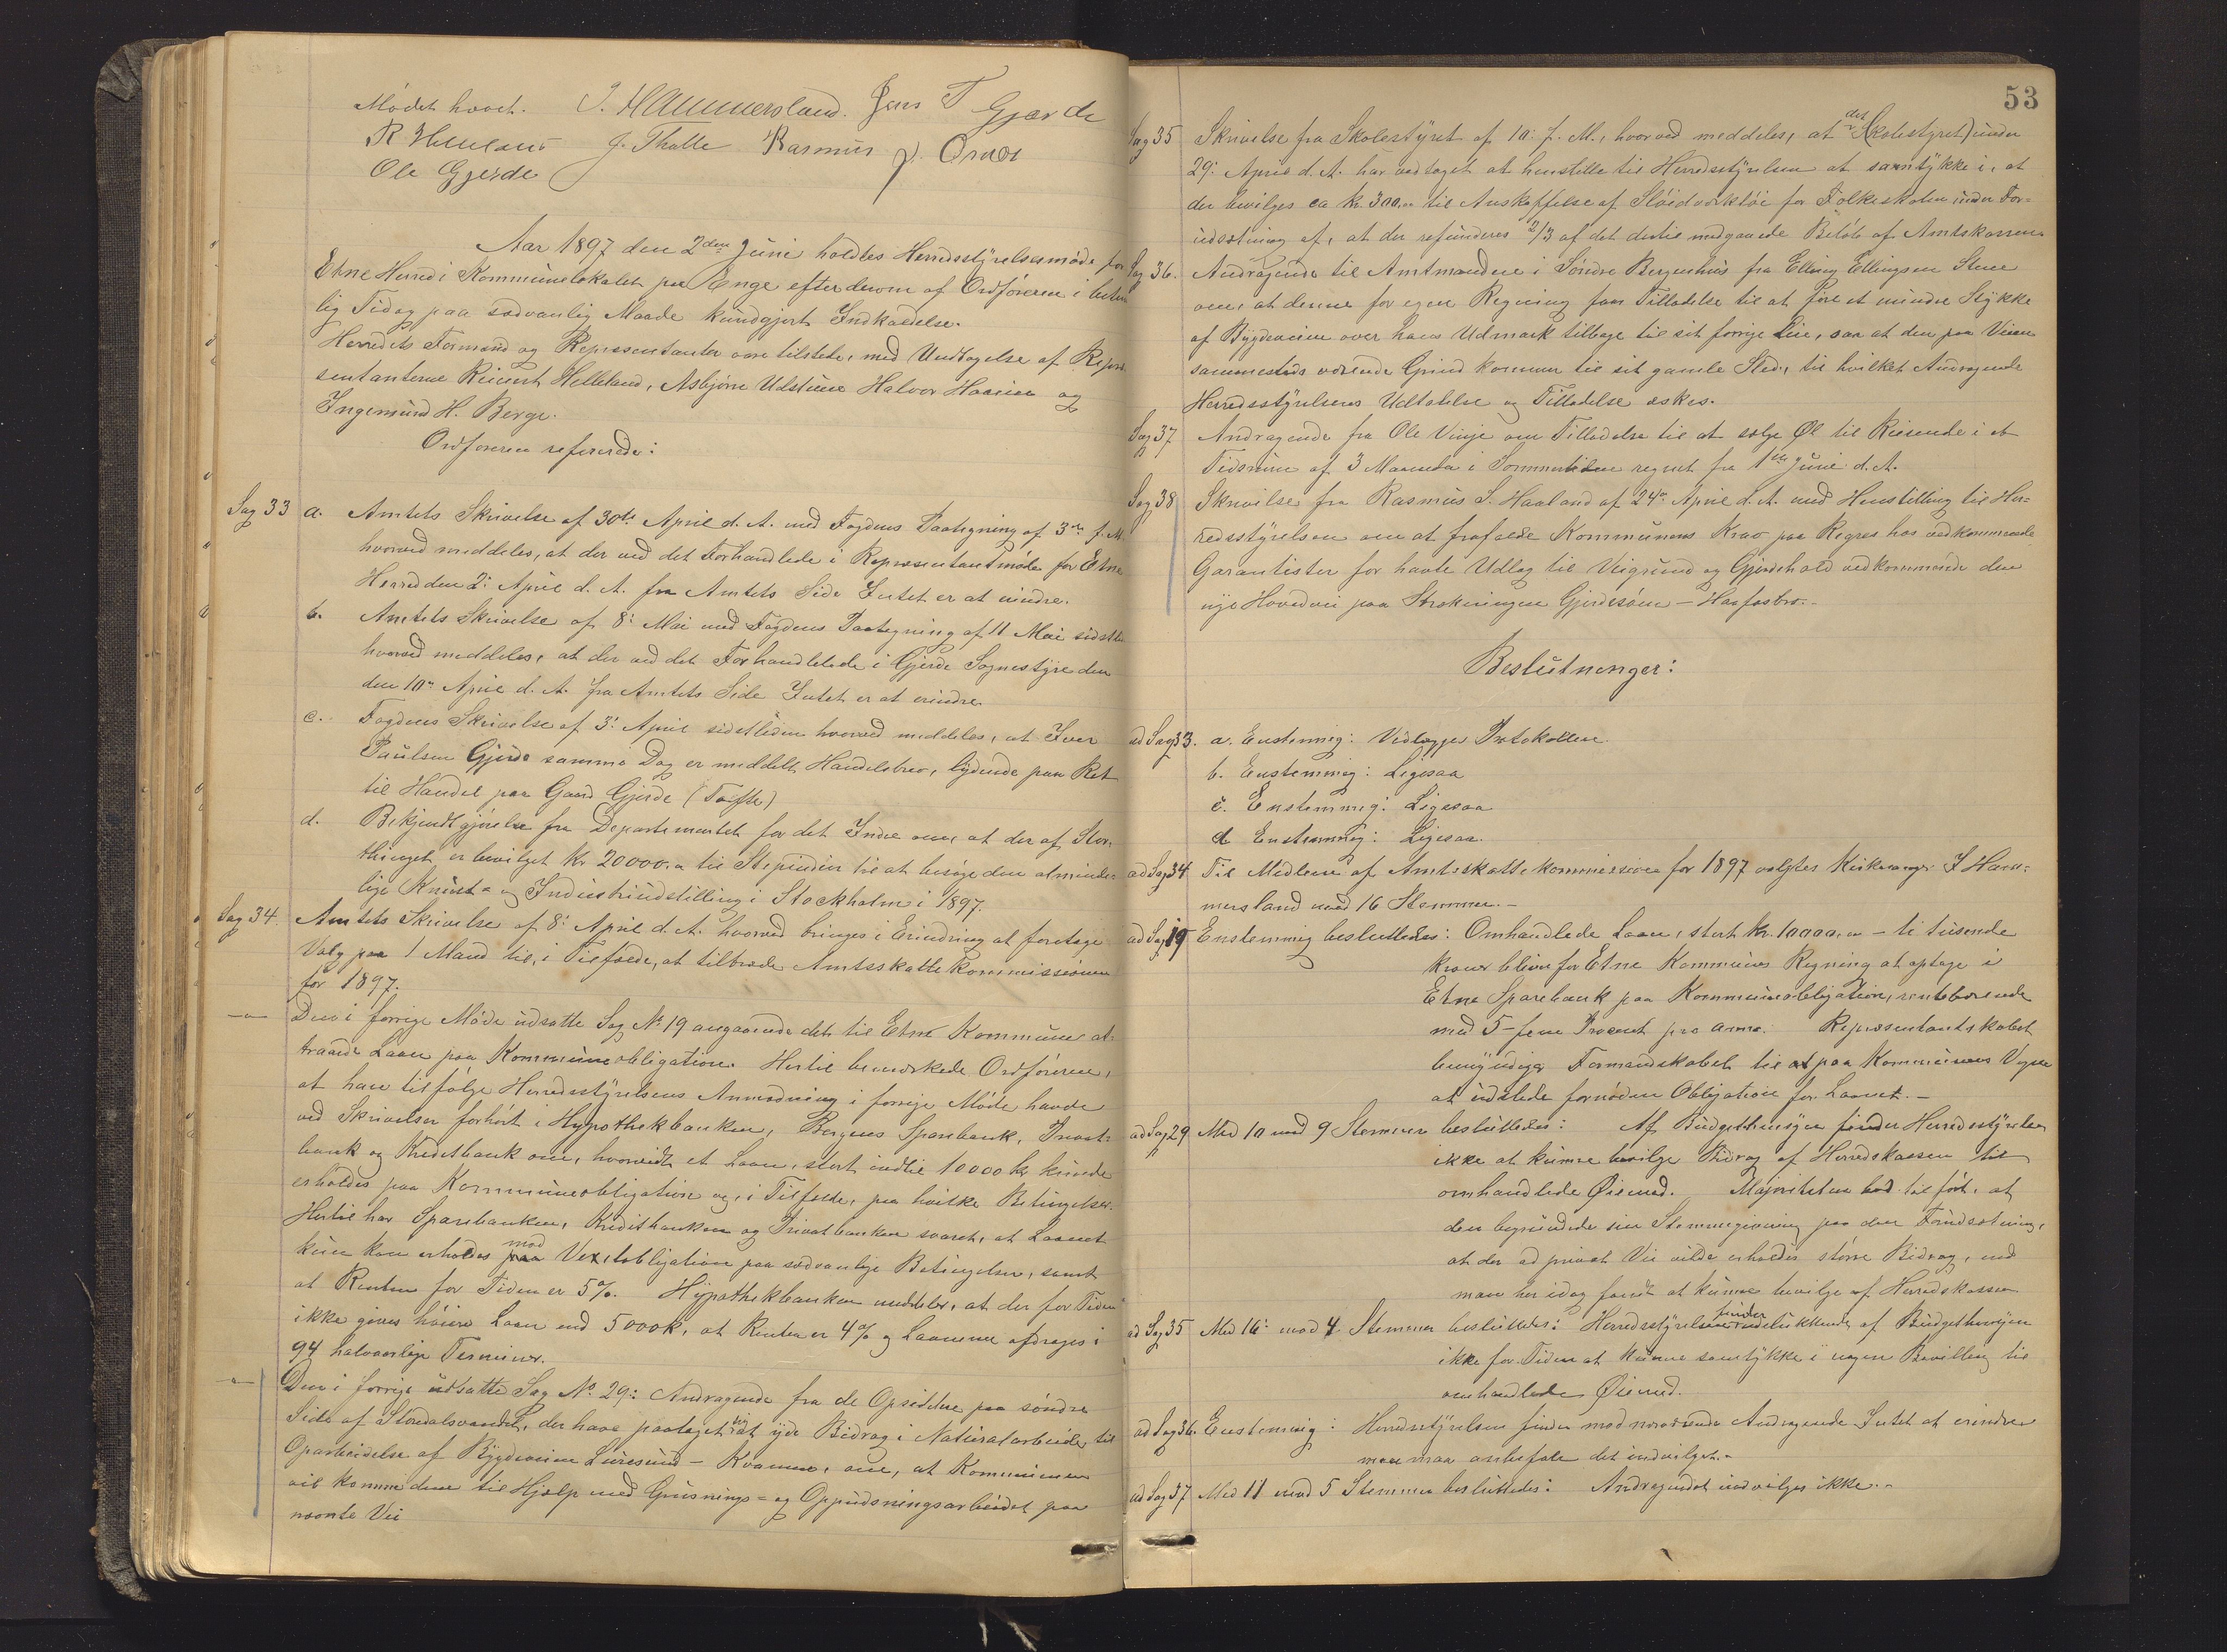 Mødet hævet. I. Hammersland. Jens T Gjærde
R Helland J. Thalle Rasmus J. Ørnes
Ole Gjerde
Aar 1897 den 2den Juni holdtes Herredsstyrelsesmøde for
Etne Herred i Kommunelokalet paa Enge efter derom af Ordføreren i betim
lig Tid og paa sædvanlig Maade kundgjort Indkaldelse.
Herredets Formænd og Repræsentanter vare tilstede, med Undtagelse af Repræ
sentanterne Reinert Helleland, Asbjørn Udstuen Halvor Haaien og
Ingemund H. Berge.
Ordføreren refererede:
Sag 33 a. Amtets Skrivelse af 30te April d. A. med Fogdens Paategning af 3die f. M.
hvorved meddeles, at der ved det Forhandlede i Repræsentantmøde for Etne
Herred den 2: April d. A. fra Amtets Side Intet er at erindre.
b. Amtets Skrivelse af 8: Mai med Fogdens Paategning af 11 Mai sidstl.
hvorved meddeles, at der ved det Forhandlede i Gjerde Sognestyre den
den 10de April d. A. fra Amtets Side Intet er at erindre
c. Fogdens Skrivelse af 3: April sidstleden hvorved meddeles, at Iver
Paulsen Gjerde samme Dag er meddelt Handelsbrev, lydende paa Ret
til Handel paa Gaard Gjerde (Tofte)
d. Bekjendtgjørelse fra Departementet for det Indre om, at der af Stor,
thinget er bevilget Kr 20000.- til Stipendier til at besøge den alminde-
lige Kunst- og Industriudstilling i Stockholm i 1897.
Sag 34. Amtets Skrivelse af 8: April d. A. hvorved bringes i Erindring at foretage
Valg paa 1 Mand til, i Tilfælde, at tiltræde Amtsskattekommissionen
for 1897.
— Den i forrige Møde udsatte Sag No 19 angaaende det til Etne Kommune at-
traaede Laan paa Kommuneobligation. Hertil bemærkede Ordføreren,
at han tilfølge Herredsstyrelsens Anmodning i forrige Møde havde
ved Skrivelser forhørt i Hypothekbanken, Bergens Sparebank, Privat-
bank og Kreditbank om, hvorvidt et Laan, stort indtil 10000 kr, kunde
erholdes paa Kommuneobligation og, i Tilfælde, paa hvilke Betingelser.
Hertil har Sparebanken, Kreditbanken og Privatbanken svaret, at Laanet
kun kan erholdes mod paa Vexelobligation paa sædvanlige Betingelser, samt
at Renten for Tiden er 5%. Hypothekbanken meddeler, at der for Tiden
ikke gives høiere Laan end 5000 k, at Renten er 4% og Laanene afdrages i
94 halvaarlige Terminer.
— Den i forrige udsatte Sag No. 29: Andragende fra de Opsiddere paa søndre
Side af Stordalsvandet, der have paataget sig at yde Bidrag i Naturalarbeide til
Oparbeidelse af Bygdeveien Luresund - Kvamme, om, at Kommunen
vil komme dem til Hjælp med Grusnings- og Oppudsningsarbeidet paa
nævnte Vei
53
Sag 35 Skrivelse fra Skolestyret af 10: f. M., hvorved meddeles, at det (Skolestyret) under
29: April d. A. har vedtaget at henstille til Herredsstyrelsen at samtykke i, at
der bevilges ca kr. 300.- til Anskaffelse af Sløidverktøi for Folkeskolen under For-
udsætning af, at der refunderes 2/3 af det dertil medgaaede Beløb af Amtskassen.
Sag 36. Andragende til Amtmanden i Søndre Bergenhus fra Elling Ellingsen Stene
om, at denne for egen Regning faar Tilladelse til at føre et mindre Stykke
af Bygdeveien over hans Udmark tilbage til sit forrige Leie, saa at den paa Veien
sammesteds værende Grind kommer til sit gamle Sted, til hvilket Andragende
Herredsstyrelsens Udtalelse og Tilladelse æskes.
Sag 37 Andragende fra Ole Vinje om Tilladelse til at sælge Øl til Reisende i et
Tidsrum af 3 Maaneder i Sommertiden regnet fra 1ste Juni d. A.
Sag 38 Skrivelse fra Rasmus S. Haaland af 24de April d. A. med Henstilling til Her-
redsstyrelsen om at frafalde Kommunens Krav paa Regres hos vedkommende
Garantister for havte Udlæg til Veigrund og Gjerdehold vedkommende den
nye Hovedvei paa Strækningen Gjerdesøen - Haafosbro.-
Beslutninger:
ad Sag 33. a. Enstemmig: Vedlægges Protokollen.
b. Enstemmig: Ligesaa
c. Enstemmig: Ligesaa
d Enstemmig: Ligesaa.
ad Sag 34 Til Medlem af Amtsskattekommissionen for 1897 valgtes Kirkesanger I Ham-
mersland med 16 Stemmer.-
ad Sag 19 Enstemmig besluttedes: Omhandlede Laan, stort Kr. 10000.- - ti tusende
kroner bliver for Etne Kommunes Regning at optage i
Etne Sparebank paa Kommuneobligation, rentebærende
med 5 - fem Procent pro anno. Repræsentantskabet
bemyndiger Formandskabet til at paa Kommunens Vegne
at udstede fornøden Obligation for Laanet.-
ad Sag 29 Med 10 mod 9 Stemmer besluttedes: Af Budgethensyn finder Herredsstyrelsen
ikke at kunne bevilge Bidrag af Herredskassen til
omhandlede Øiemed. Majoriteten bad tilført, at
den begrundede sin Stemmegivning paa den Forudsætning,
at der ad privat Vei vilde erholdes større Bidrag, end
man her idag fandt at kunne bevilge af Herredskassen
ad Sag 35 Med 16: mod 4 Stemmer besluttedes: Herredsstyrelsen finder udelukkende af Budgethensyn
ikke for Tiden at kunne samtykke i nogen Bevilling til
omhandlede Øiemed.
ad Sag 36. Enstemmig: Herredsstyrelsen finder mod nærværende Andragende Intet at erindre
men maa anbefale det indvilget.-
ad Sag 37 Med 11 mod 5 Stemmer besluttedes: Andragendet indvilges ikke.-